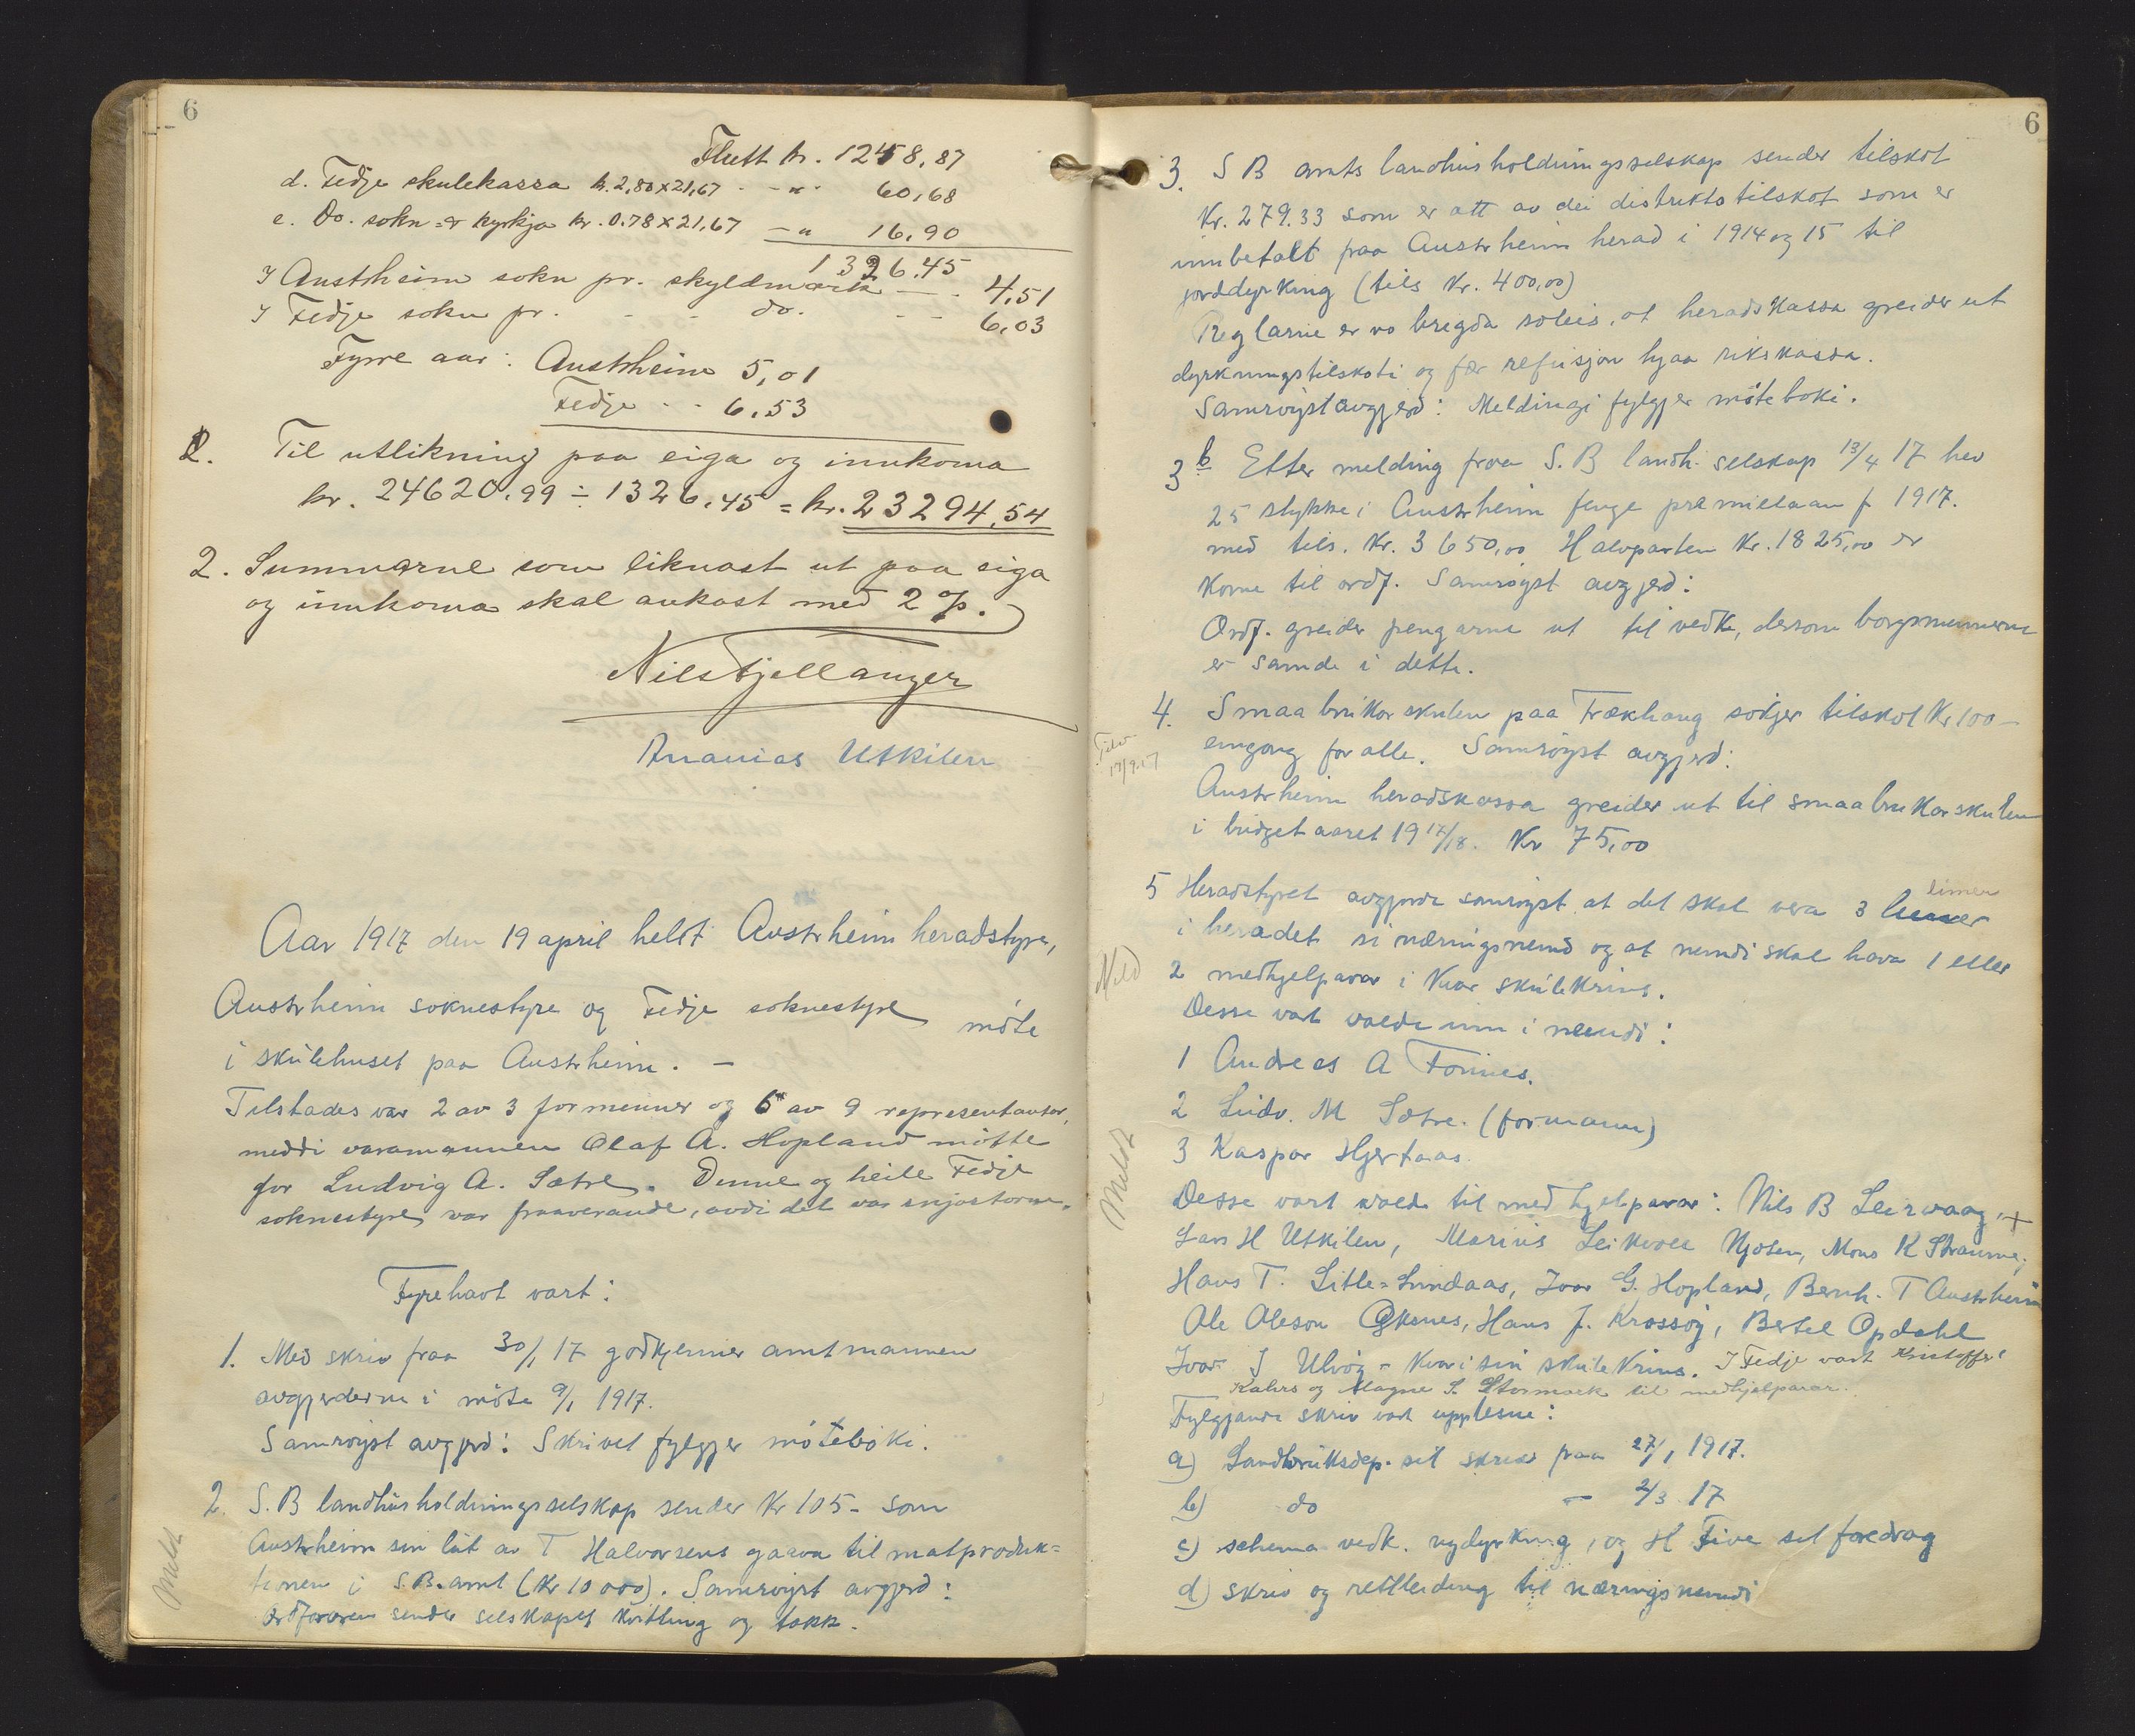 6
Flutt kr. 1248,87
d. Fedje skulekassa kr. 2,80 x 21,67 - - " - 60,68
e. Do. sokn = er kyrkja kr. 0.78 x 21,67 - " 16,90
1326.45
I Austrheim sokn pr. skyldmark - - 4,51
I Fedje sokn pr. - - do. - - 6,03
Fyrre aar: Austrheim 5,01
Fedje - - 6,53
Til utlikning paa eiga og innkoma
kr. 24620.99 ÷ 1326.45 = kr. 23294,54
2. Summarne som liknast ut paa eiga
og innkoma skal aukast med 2 %.
Nils Fjellanger
Ananias Utkilen
Aar 1917 den 19 april heldt Austrheim heradstyre,
Austrheim soknestyre og Fedje soknestyre møte
i skulehuset paa Austrheim. -
Tilstades var 2 av 3 formenner og 6 av 9 representantar,
meddi varamannen Olaf A. Hopland møtte
for Ludvig A. Sætre. Denne og heile Fedje
soknestyre var fraaverande, avdi det var snjostorm.
Fyrehavt vart:
1. Med skriv fraa 30/1 17 godkjenner amtmannen
avgjerderne i møte 9/1 1917.
Samrøyst avgjerd: Skrivet fylgjer møteboki.
2. S. B landhusholdningsselskap sender Kr 105 - som
Austrheim sin lut av T Halvorsens gaava til matproduk=
tionen i S.B. amt (Kr 10 000). Samrøyst avgjerd:
Ordføraren sender selskapet kvitting og takk.
Meldt
6
3. S B amts landhusholdningsselskap sender tilskot
Kr. 279.33 som er att av dei distriktstilskot som er
innbetalt paa Austrheim herad i 1914 og 15 til
jorddyrking (tils Kr. 400,00)
Reglarne er no brigda soleis, at heradskassa greider ut
dyrkningstilskoti og fær refusjon hjaa rikskassa.
Samrøyst avgjerd: Meldingi fylgjer møteboki.
3 b Etter melding fraa S. B landh. selskap 13/4 17 hev
25 stykke i Austrheim fenge premielaan f 1917.
med tils. Kr. 3650,00 Halvparten Kr. 1825,00 er
kome til ordf. Samrøyst avgjerd:
Ordf. greider pengarne ut til vedk, dersom borgsmennerne
er samde i dette.
4. Smaabrukarskulen paa Trækhaug søkjer tilskot Kr 100 -
eingong for alle. Samrøyst avgjerd:
Austrheim heradskassa greider ut til smaabrukarskulen
i budgetaaret 1917/18. Kr 75,00
5 Heradstyret avgjorde samrøyst at det skal vera 3 limer
i heradet si næringsnemd og at nemdi skal hava 1 eller
Meld
2 medhjelparar i kvar skulekrins.
Desse vart valde inn i nemdi:
1 Andreas A Fonnes.
2 Ludv. M Sætre. (formann)
3 Kaspar Hjertaas.
Meldt
Desse vart valde til medhjelparar: Nils B Leirvaag, +
Lars H Utkilen, Marius Njøten, Mons K Straume,
Hans T. Litle-Lundaas, Ivar G. Hopland, Bernh. T Austrheim
Ole Oleson Øksnes, Hans J. Krossøy, Bertel Opdahl
Ivar J Ulvøy - kvar i sin skulekrins. I Fedje vart Kristoffer
Kahrs og Magne S. Stormark til medhjelparar.
Fylgjande skriv vart upplesne:
a) Landbruksdep. sit skriv fraa 27/1 1917.
b) do - 2/3 17
c) schema vedk. nydyrking, og H Five sit foredrag
d) skriv og rettleiding til næringsnemdi